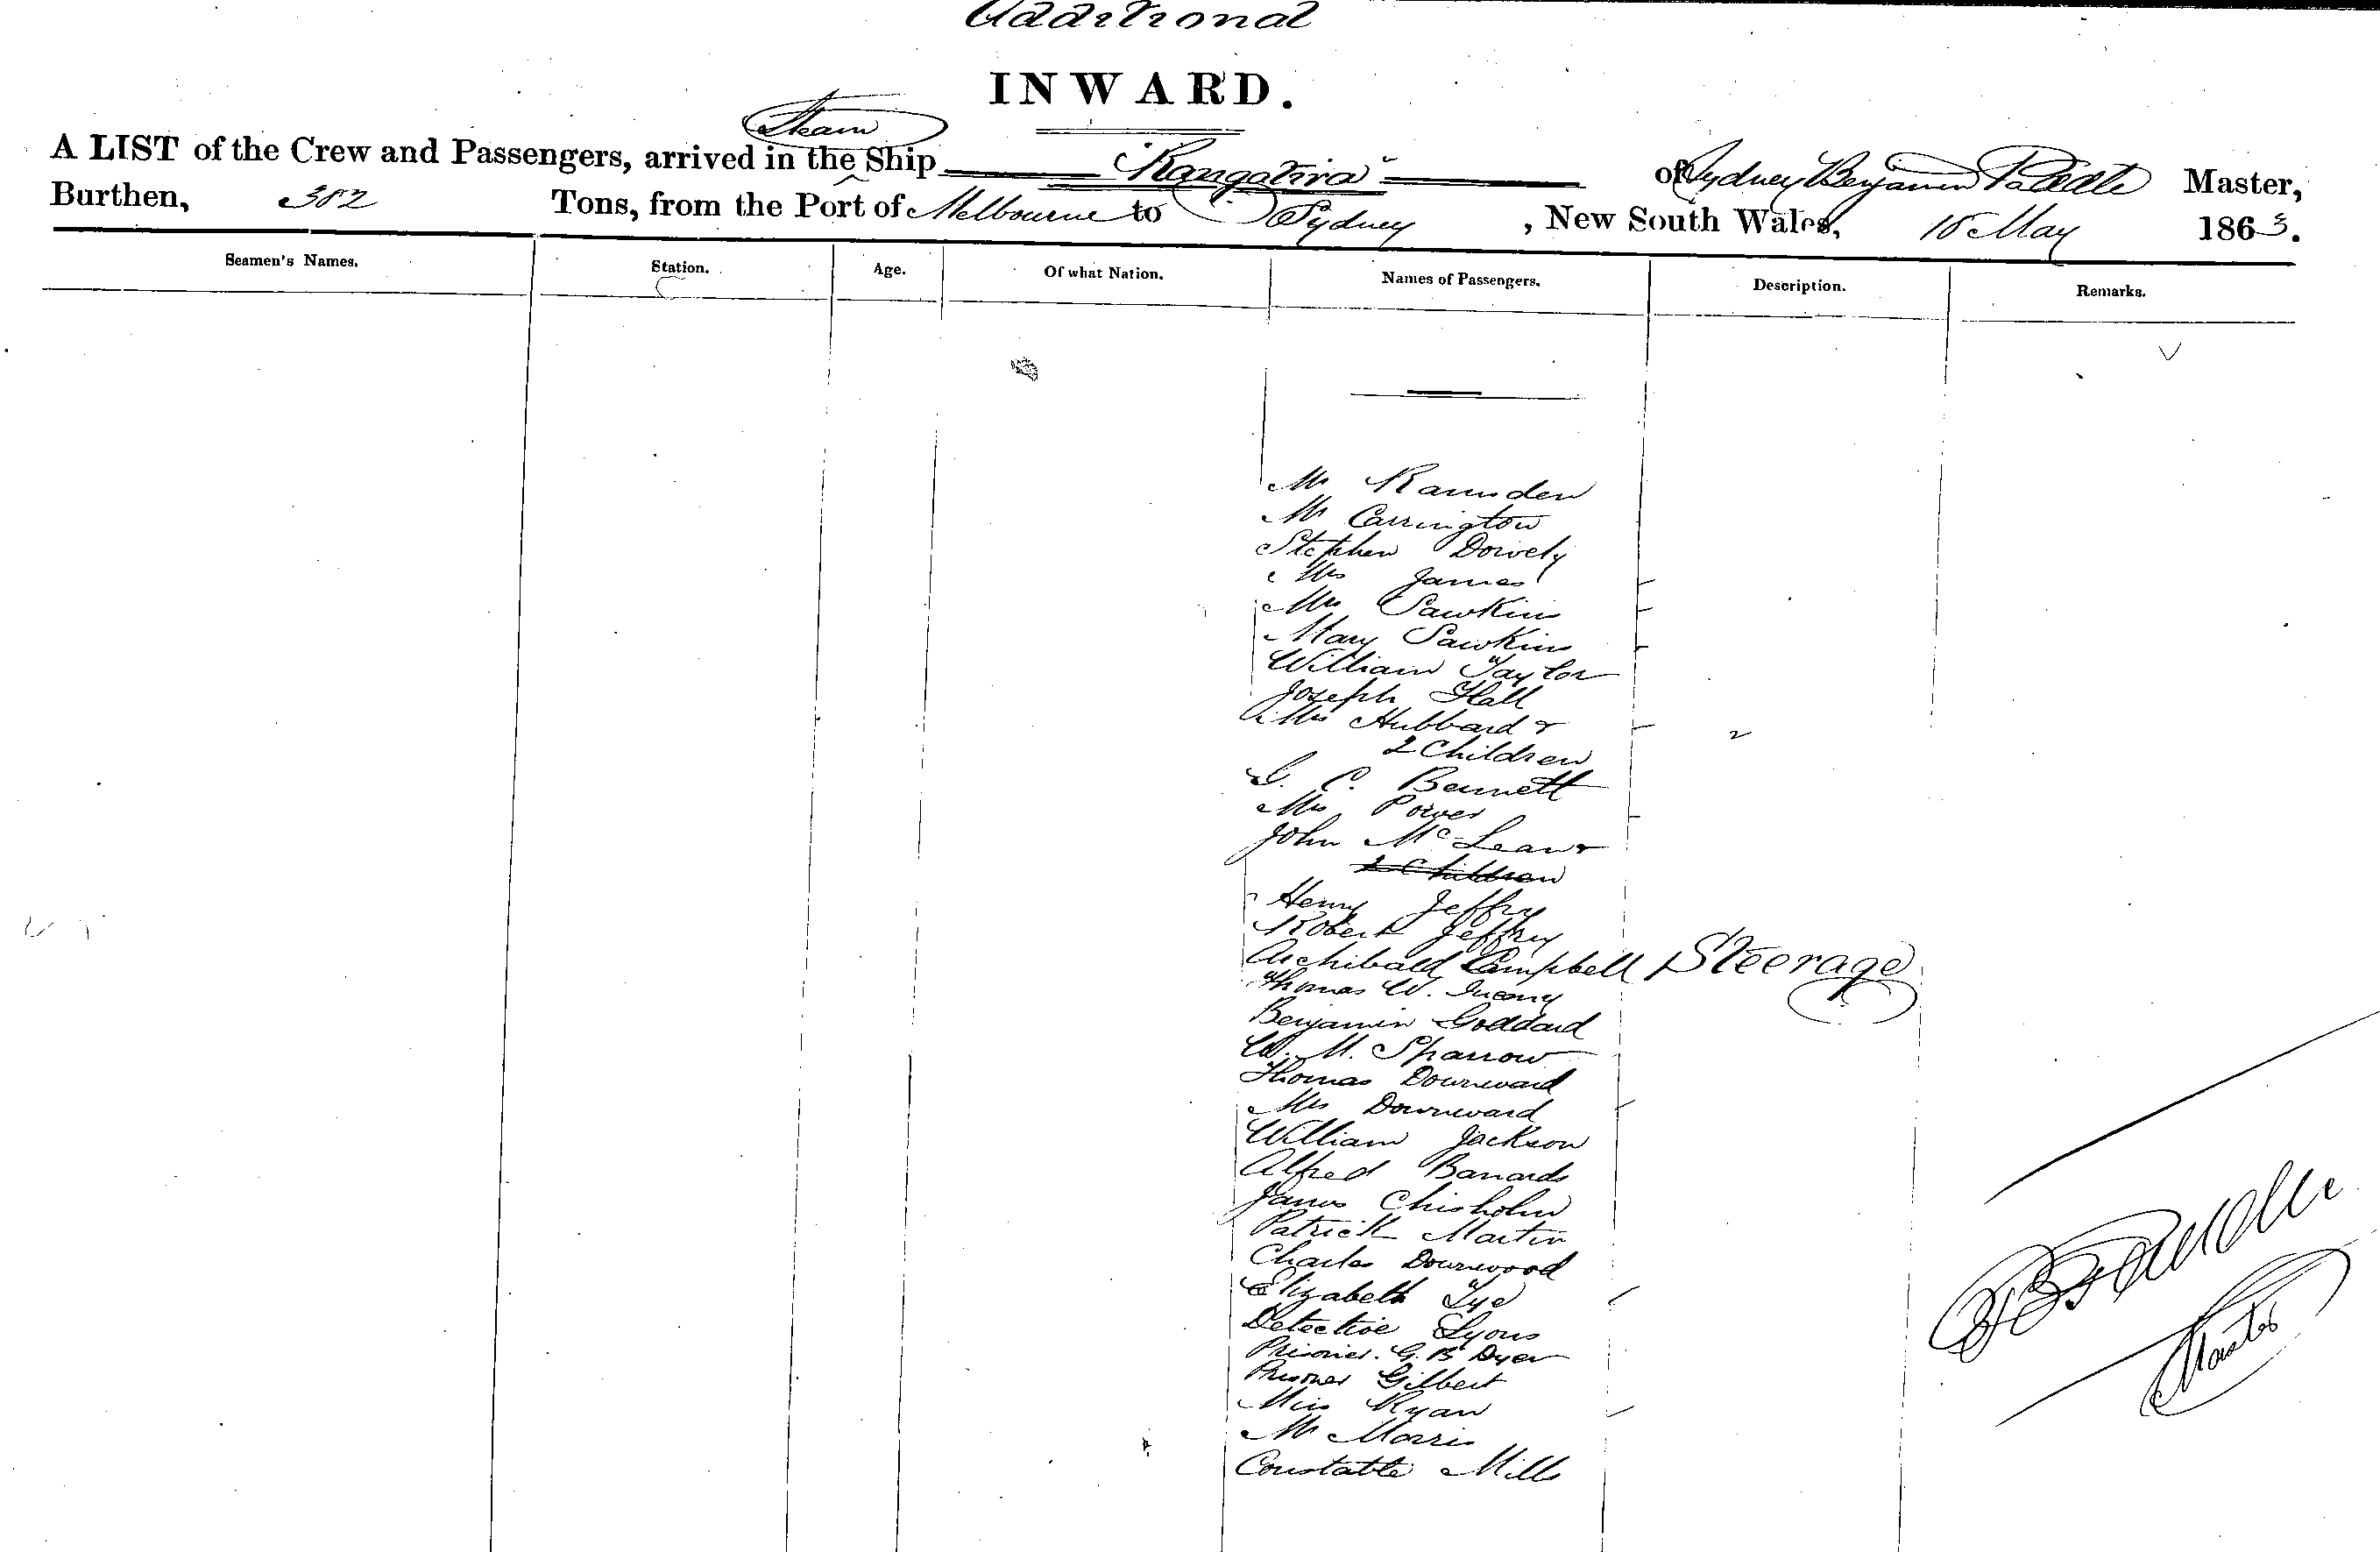 Additional
INWARD.
Steam
A LIST of the Crew and Passengers, arrived in the Ship "Rangatira" of Sydney Benjamin Master,
Burthen, 382 Tons, from the Port of Melbourne to Sydney, New South Wales, 15 May 1863.
Seamen's Names. Station. Age. Of what Nation. Names of Passengers. Description. Remarks.
Mr Ramsden
Mr Carrington
Stephen
Mrs James
Mrs Sawkins
Mary Sawkins
William Taylor
Joseph Hall
Mrs Hubbard &
2 Children 2
C. Bennett
Mrs Power
John McLean &
2 Children
Henry Jeffry
Robert Jeffrey
Archibald Campbell Steerage
Thomas W.
Benjamin Goddard
W. M. Sparrow
Thomas Downward
Mrs Downward
William Jackson
Alfred Banards
James Chisholm
Patrick Martin
Charles Downwood
Elizabeth Tye
Detective Lyons
Prisoner. G. B Dyer
Prisoner Gilbert
Miss Ryan
Mr Morris
Constable Mills
Master